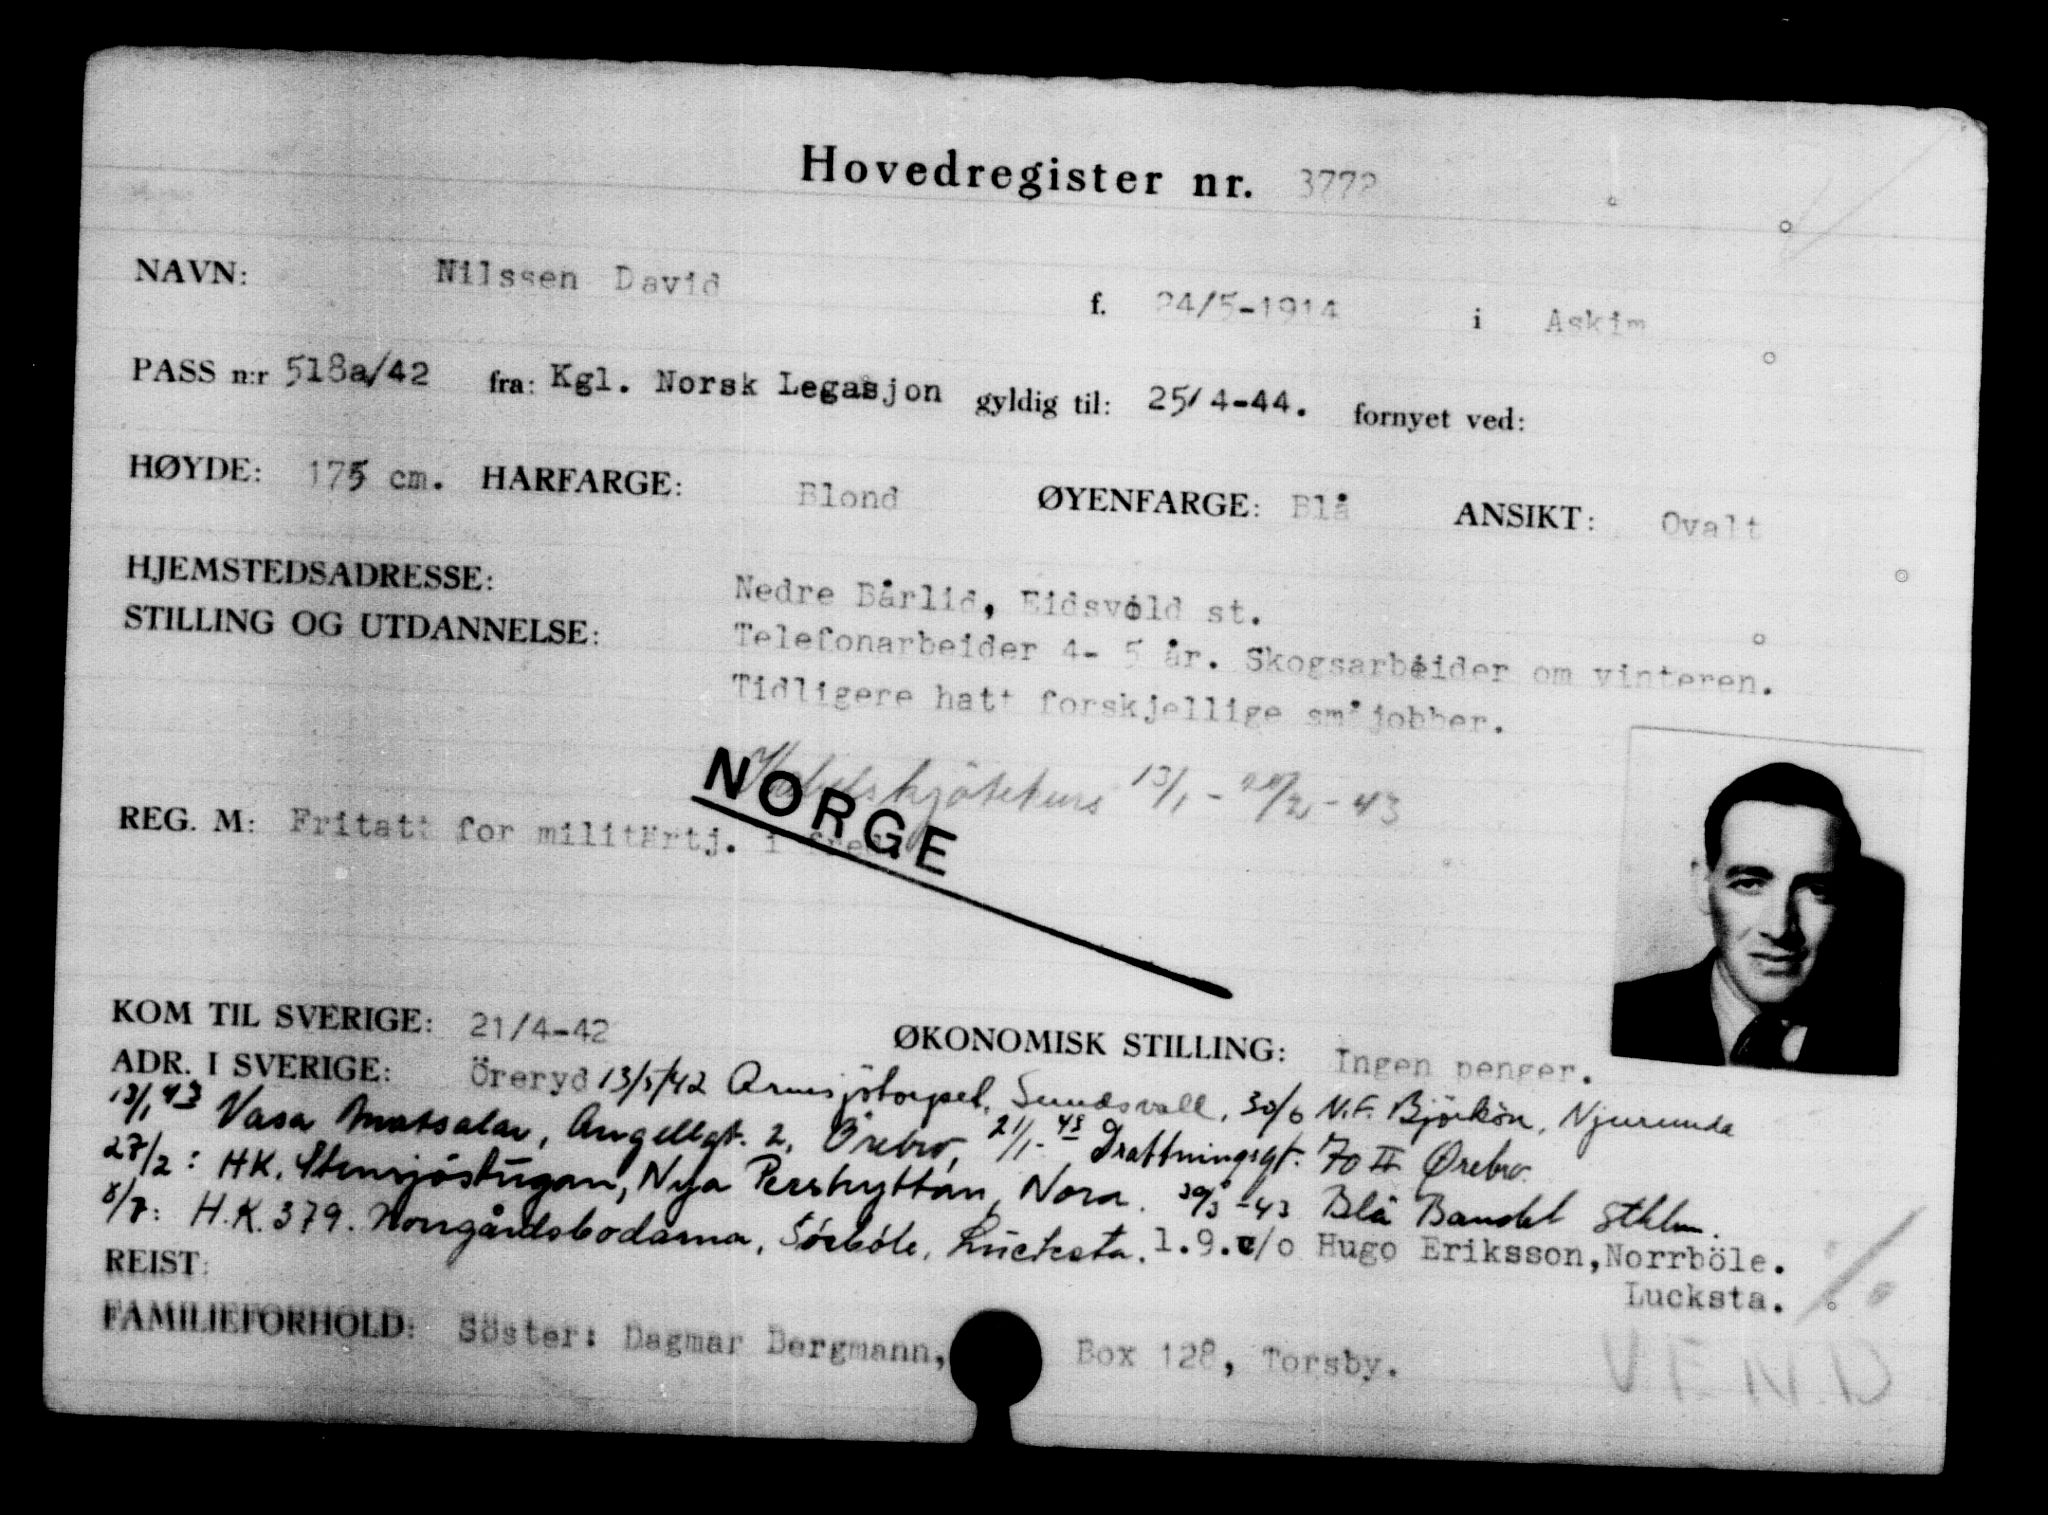 Hovedregister nr. 3772
NAVN: Nilssen David f. 24/5-1914 i Askim
PASS n:r 518a/42 fra: Kgl. Norsk Legasjon gyldig til: 25/4-44. fornyet ved:
HØYDE: 175 cm. HARFARGE: Blond ØYENFARGE: Blå ANSIKT: Ovalt
HJEMSTEDSADRESSE: Nedre Bårlid, Eidsvold st.
STILLING OG UTDANNELSE: Telefonarbeider 4- 5 år. Skogsarbeider om vinteren.
Tidligere hatt forskjellige småjobber.
13/1 - 43
NORGE
REG. M: Fritatt for militärtj. i
KOM TIL SVERIGE: 21/4-42 ØKONOMISK STILLING: Ingen penger.
ADR. I SVERIGE: Öreryd 13/5/42 Armsjötorpet, Sundsvall, 30/6 N.F. Björkön, Njurunda
13/1 43 Vasa Matsalar, Angellgt. 2, Örebro, 21/1-43 Drattningsgt. 70 II Ørebro.
27/2: HK. Stensjöstugan, Nya Pershyttan, Nora. 30/3-43 Blå Bandet Sthlm.
8/7: H.K. 379. Norrgårdsbodarna, Sörböle, Lucksta. 1.9. c/o Hugo Eriksson, Norrböle.
Lucksta.
REIST:
FAMILIEFORHOLD: Söster: Dagmar Bergmann, Box 128, Torsby.